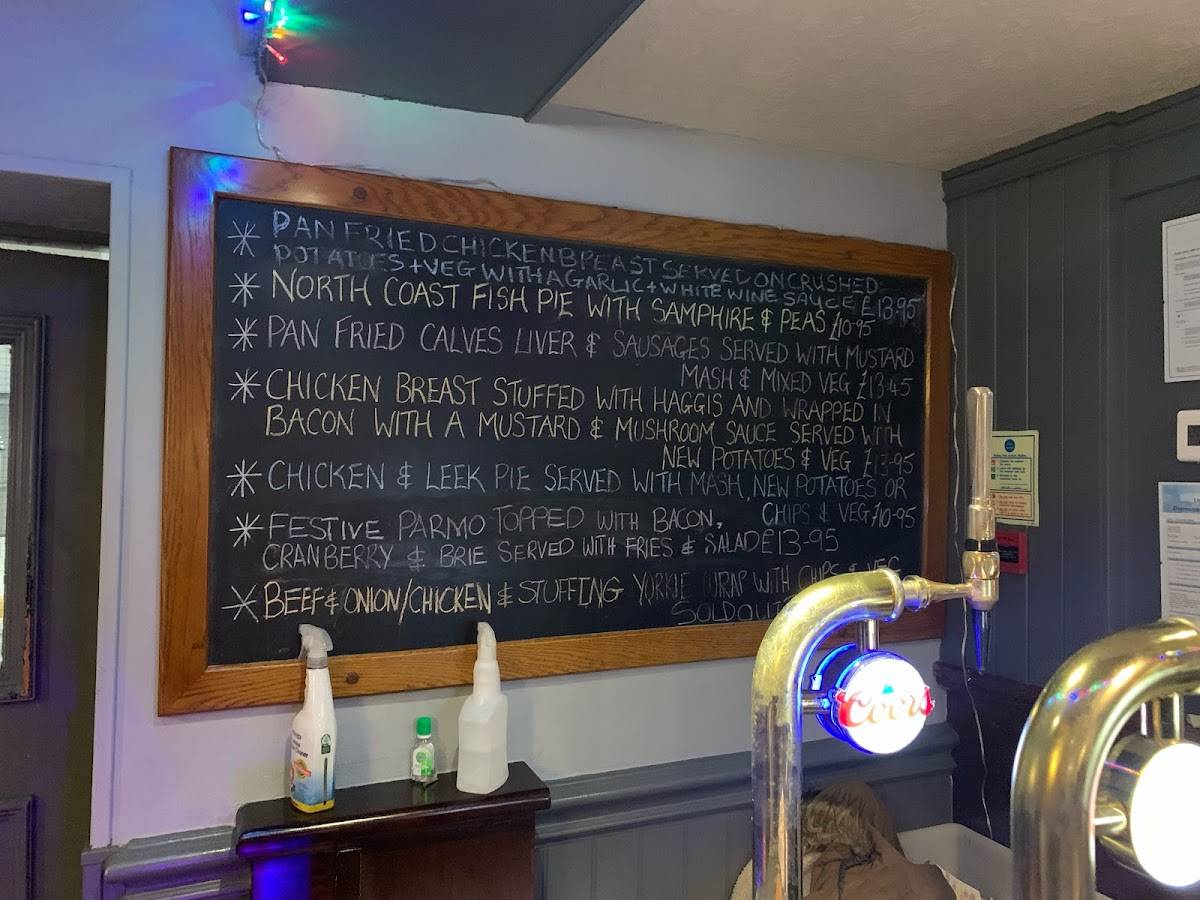 * PAN FRIED CHICKEN BREAST SERVED ON CRUSHED
POTATOES + VEG WITH A GARLIC + WHITE WINE SAUCE £13.95
* NORTH COAST FISH PIE WITH SAMPHIRE & PEAS £10-95
* PAN FRIED CALVES LIVER & SAUSAGES SERVED WITH MUSTARD
MASH & MIXED VEG £13-45
* CHICKEN BREAST STUFFED WITH HAGGIS AND WRAPPED IN
BACON WITH A MUSTARD & MUSHROOM SAUCE SERVED WITH
NEW POTATOES & VEG £13-95
* CHICKEN & LEEK PIE SERVED WITH MASH, NEW POTATOES OR
CHIPS & VEG £10-95
* FESTIVE PARMO TOPPED WITH BACON,
CRANBERRY & BRIE SERVED WITH FRIES & SALAD £13-95
* BEEF & ONION/CHICKEN & STUFFING YORKIE WRAP WITH CHIPS & VEG
SOLD OUT
Coors